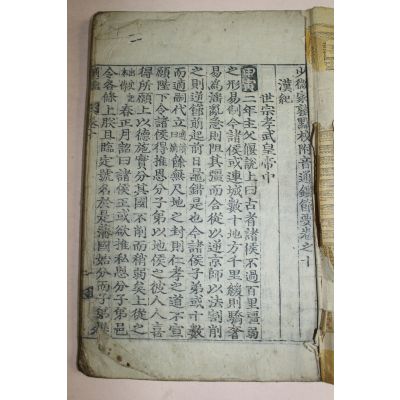 少微家塾點校附音通鑑節要卷之十
漢紀
世宗孝武皇帝中
甲寅二年主父偃說上曰古者諸侯不過百里彊弱
之形易制今諸侯或連城數十地方千里緩則驕奢
易為淫亂急則阻其彊而合從以逆京師以法割削
之則逆節萌起前日鼂錯是也今諸侯子弟或十數
而適嗣代立餘無尺地之封則仁孝之道不宣
願陛下令諸侯得推恩分子弟以地侯之彼人人喜
得所願上以德施實分其國不削而稍弱矣上從之
春正月詔曰諸侯王或欲推私恩分子弟邑
令各條上朕且臨定號名於是藩國始分而子弟畢